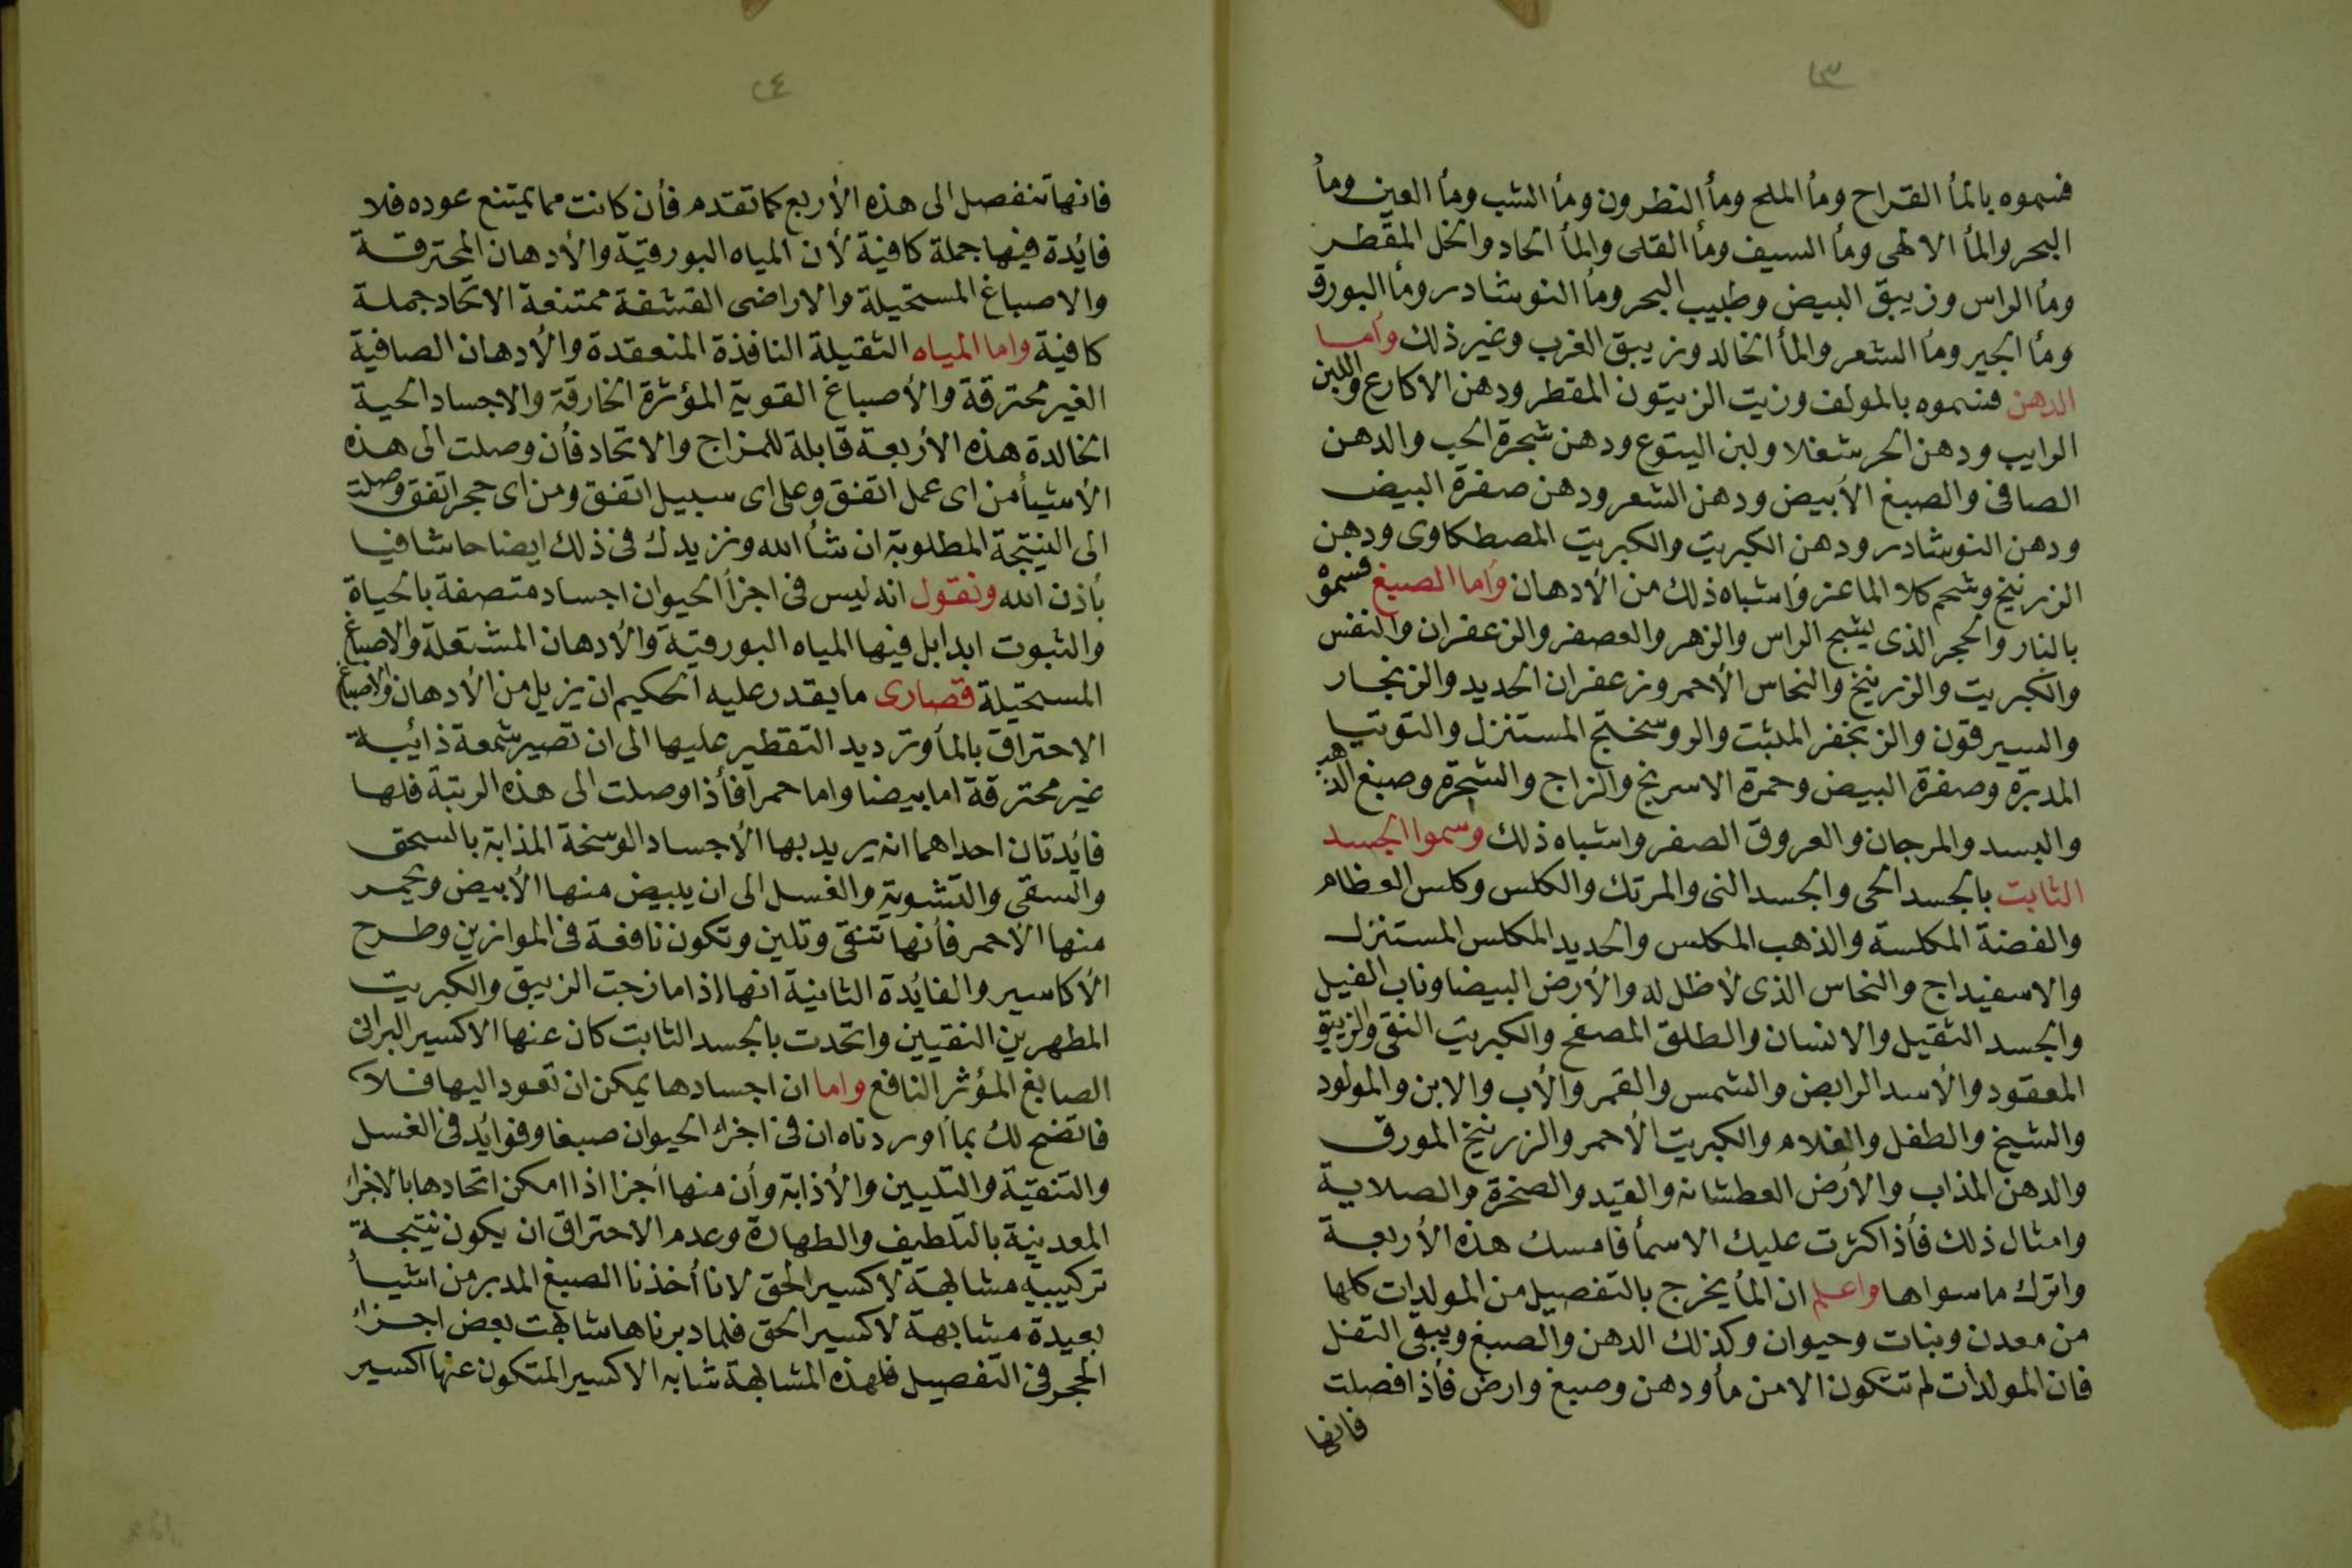 ٢٣
فسموه بالمأ القراح ومأ الملح ومأ النطرون ومأ الشب ومأ العين ومأ
البحر والمأ الالهى ومأ السيف ومأ القلى والمأ الحاد والخل المقطر
ومأ الراس وزيبق البيض وطبيب البحر ومأ النوشادر ومأ البورق
ومأ الجير ومأ الشعر والمأ الخالد وزيبق الغرب وغير ذلك وأما
الدهن فسموه بالمولف وزيت الزيتون المقطر ودهن الاكارع واللبن
الرايب ودهن الحرشغلا ولبن اليتوع ودهن شجرة الحب والدهن
الصافى والصبغ الأبيض ودهن الشعر ودهن صفرة البيض
ودهن النوشادر ودهن الكبريت والكبريت المصطكاوى ودهن
الزرنيخ وشحم كلا الماعز وأشباه ذلك من الأدهان وأما الصبغ فسموه
بالنار والحجر الذى يشج الراس والزهر والعصفر والزعفران والنفس
والكبريت والزرنيخ والنحاس الأحمر وزعفران الحديد والزنجار
والسيرقون والزنجفر المثبت والروسختج المستنزل والتوتيا
المدبرة وصفرة البيض وحمرة الاسرنج والزاج والشجرة وصبغ الذهب
والبسد والمرجان والعروق الصفر واشباه ذلك وسموا الجسد
الثابت بالجسد الحى والجسد النى والمرتك والكلس وكلس العظام
والفضة المكلسة والذهب المكلس والحديد المكلس المستنزل
والاسفيداج والنحاس الذى لأظل له والأرض البيضا وناب الفيل
والجسد الثقيل والانسان والطلق المصفح والكبريت النقى والزيبق
المعقود والأسد الرابض والشمس والقمر والأب والابن والمولود
والشيخ والطفل والغلام والكبريت الأحمر والزرنيخ المورق
والدهن المذاب والأرض العطشانه والقيد والصخرة والصلاية
وامثال ذلك فأذا كثرت عليك الاسمأ فامسك هذه الأربعة
واترك ماسواها واعلم ان المأ يخرج بالتفصيل من المولدات كلها
من معدن ونبات وحيوان وكذلك الدهن والصبغ ويبقى الثفل
فان المولدات لم تتكون الا من مأ ودهن وصبغ وارض فأذا فصلت
فانها
٢٤
فانها تنفصل الى هذه الأربع كما تقدم فأن كانت مما يمتنع عوده فلا
فايدة فيها جملة كافية لأن المياه البورقية والأدهان المحترقة
والاصباغ المستحيلة والاراضى القشفة ممتنعة الاتحاد جملة
كافية واما المياه الثقيلة النافذة المنعقدة والأدهان الصافية
الغير محترقة والأصباغ القوية المؤثرة الخارقة والاجساد الحية
الخالدة هذه الأربعة قابلة للمزاج والاتحاد فأن وصلت الى هذه
الأشيأ من اى عمل اتفق وعلى اى سبيل اتفق ومن اى حجر اتفق وصلت
الى النتيجة المطلوبة ان شأ الله ونزيدك فى ذلك ايضاحا شافيا
بأذن الله ونقول انه ليس فى اجزأ الحيوان اجساد متصفة بالحياة
والثبوت ابدا بل فيها المياه البورقية والأدهان المشتعلة والاصباغ
المستحيلة قصارى ما يقدر عليه الحكيم ان يزيل من الأدهان والاصباغ
الاحتراق بالمأ وترديد التقطير عليها الى ان تصير شمعة ذائبة
غير محترقة اما بيضا واما حمرا فأذا وصلت الى هذه الرتبة فلها
فايدتان احداهما انه يريد بها الأجساد الوسخة المذابة بالسحق
والسقى والتشوية والغسل الى ان يبيض منها الأبيض ويحمر
منها الأحمر فأنها تنقى وتلين وتكون نافعة فى الموازين وطرح
الأكاسير والفايدة الثانية انها اذا مازجت الزيبق والكبريت
المطهرين النقيين واتحدت بالجسد الثابت كان عنها الاكسير البرانى
الصابغ المؤثر النافع واما ان اجسادها يمكن ان تعود اليها فلا
فاتضح لك بما أوردناه ان فى اجزاء الحيوان صبغا وفوايد فى الغسل
والتنقية والتليين والأذابة وأن منها أجزا اذا امكن اتحادها بالاجزاء
المعدنية بالتلطيف والطهارة وعدم الاحتراق ان يكون نتيجة
تركيبية مشابهة لاكسير الحق لانا أخذنا الصبغ المدبر من اشيأ
بعيدة مشابهة لاكسير الحق فلما دبرناها شابهت بعض اجزاء
الحجر فى التفصيل فلهذه المشابهة شابه الاكسير المتكون عنها اكسير